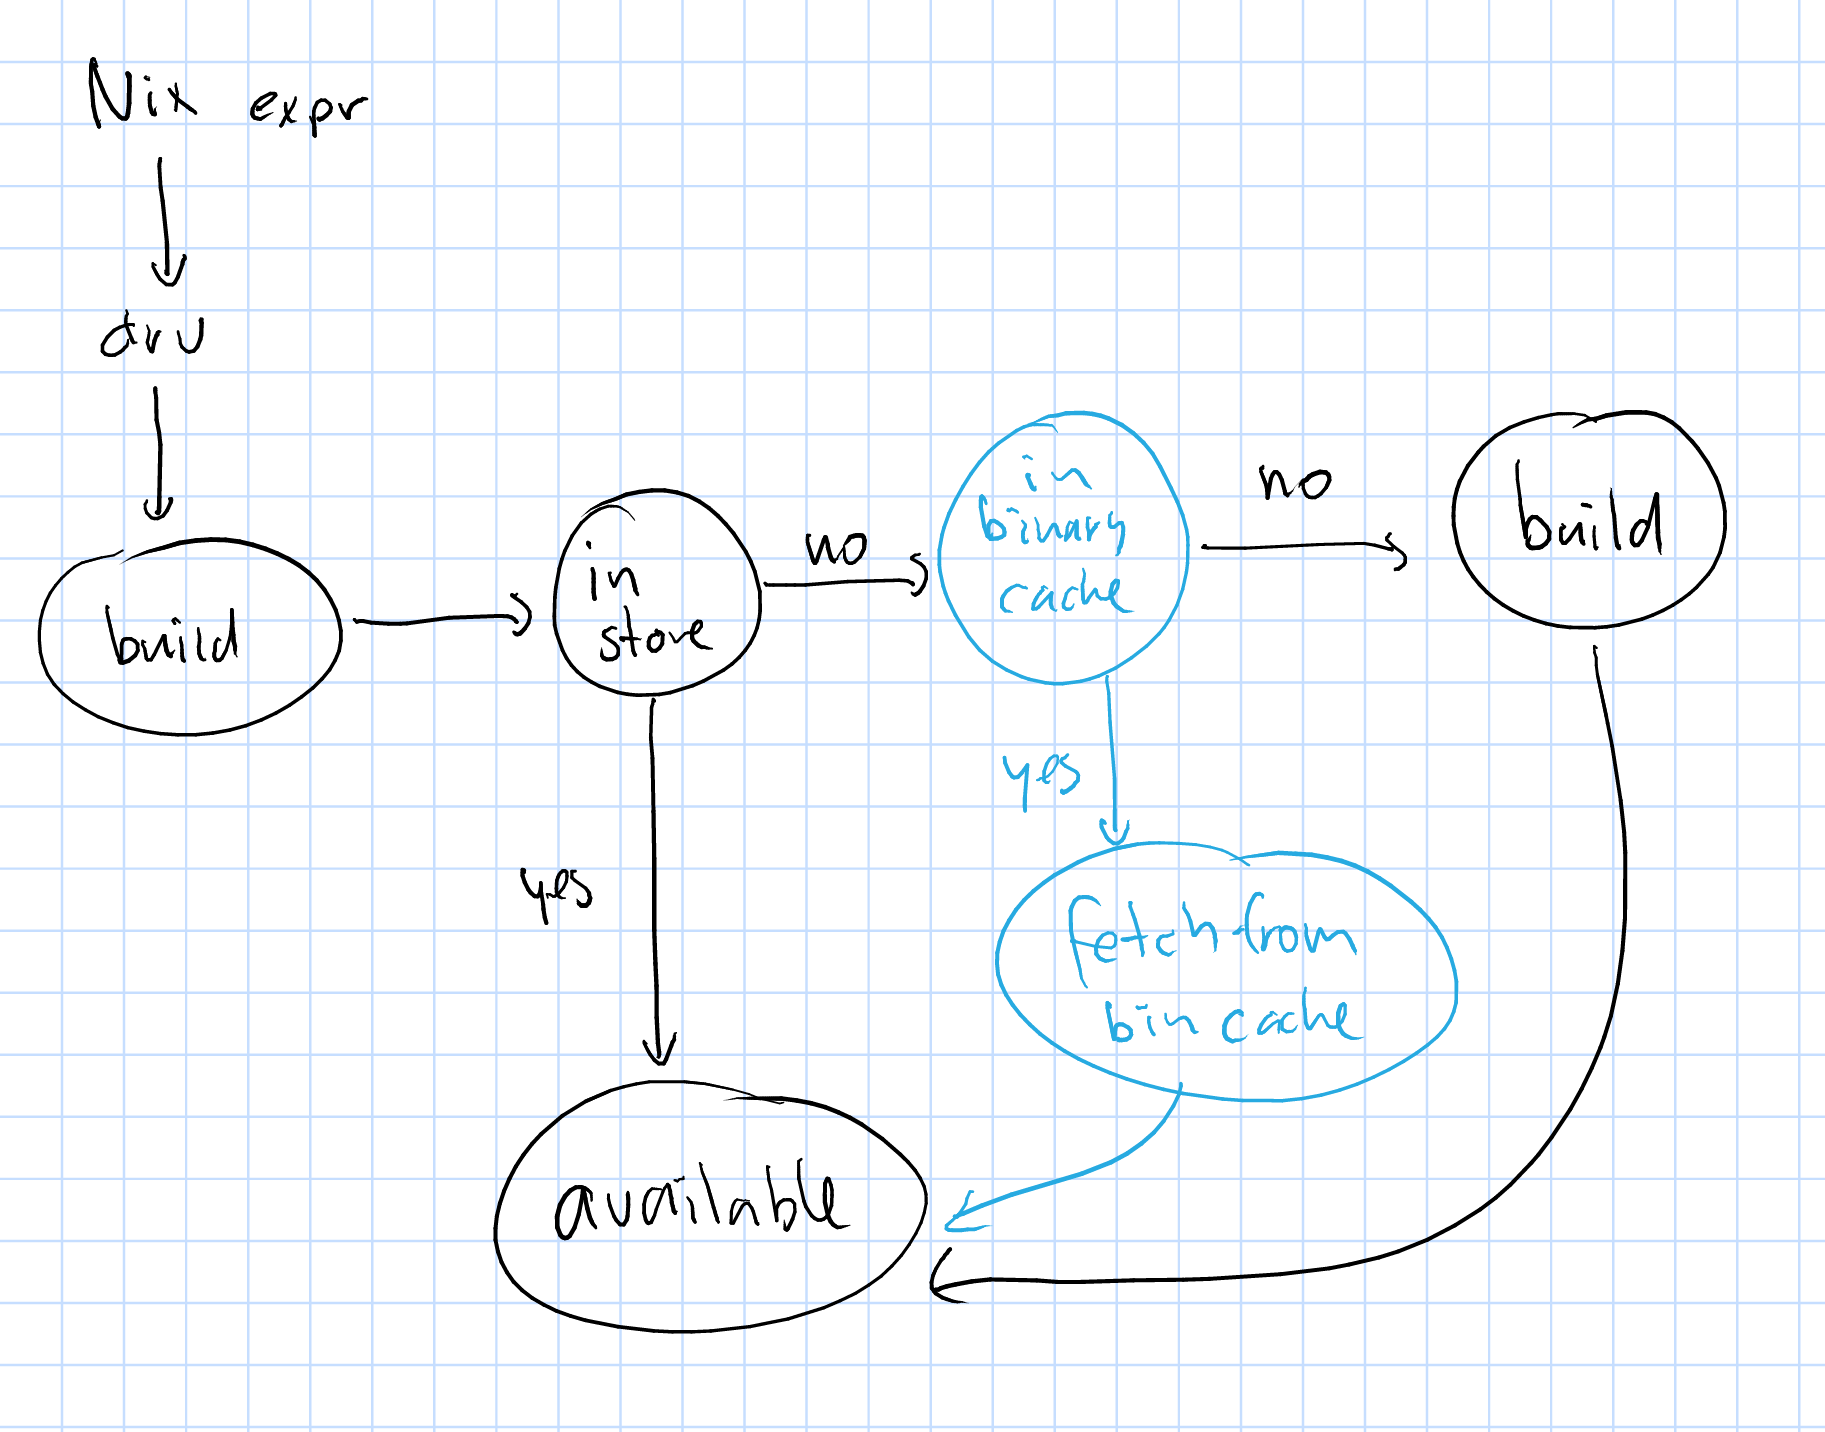 Nix expr
drv
build
in
store
no
in
binary
cache
no
build
yes
yes
fetch from
bin cache
available